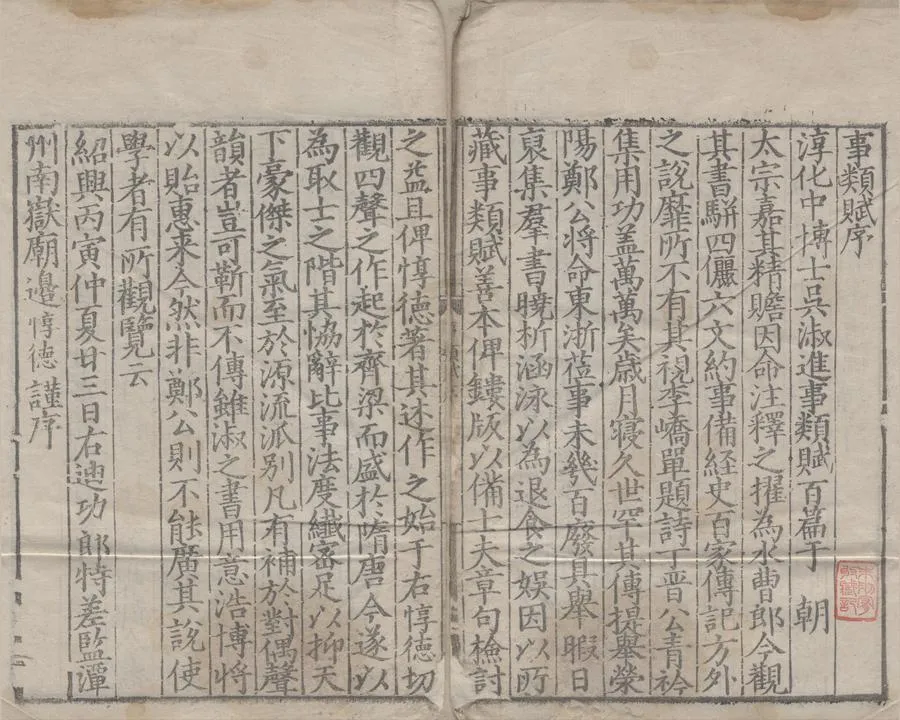 事類賦序
淳化中博士吳淑進事類賦百篇于 朝
太宗嘉其精贍因命注釋之擢為水曹郎今觀
其書駢四儷六文約事備経史百家傳記方外
之說靡所不有其視李嶠單題詩丁晋公青衿
集用功盖萬萬矣歳月寖久世罕其傳提舉榮
陽鄭公將命東浙蒞事未幾百廢具舉暇日
裒集羣書曉析涵泳以為退食之娱因以所
藏事類賦善本俾鏤版以備士夫章句檢討
之益且俾惇德著其述作之始于右惇德切
觀四聲之作起於齊梁而盛於隋唐今遂以
為取士之階其恊辭比事法度纎宻足以抑天
下豪傑之氣至於源流派别凡有補於對偶聲
韻者豈可靳而不傳雖淑之書用意浩博將
以貽惠来今然非鄭公則不能廣其說使
學者有所觀覽云
紹興丙寅仲夏廿三日右迪功郎特差監潭
州南嶽廟邉惇德謹序